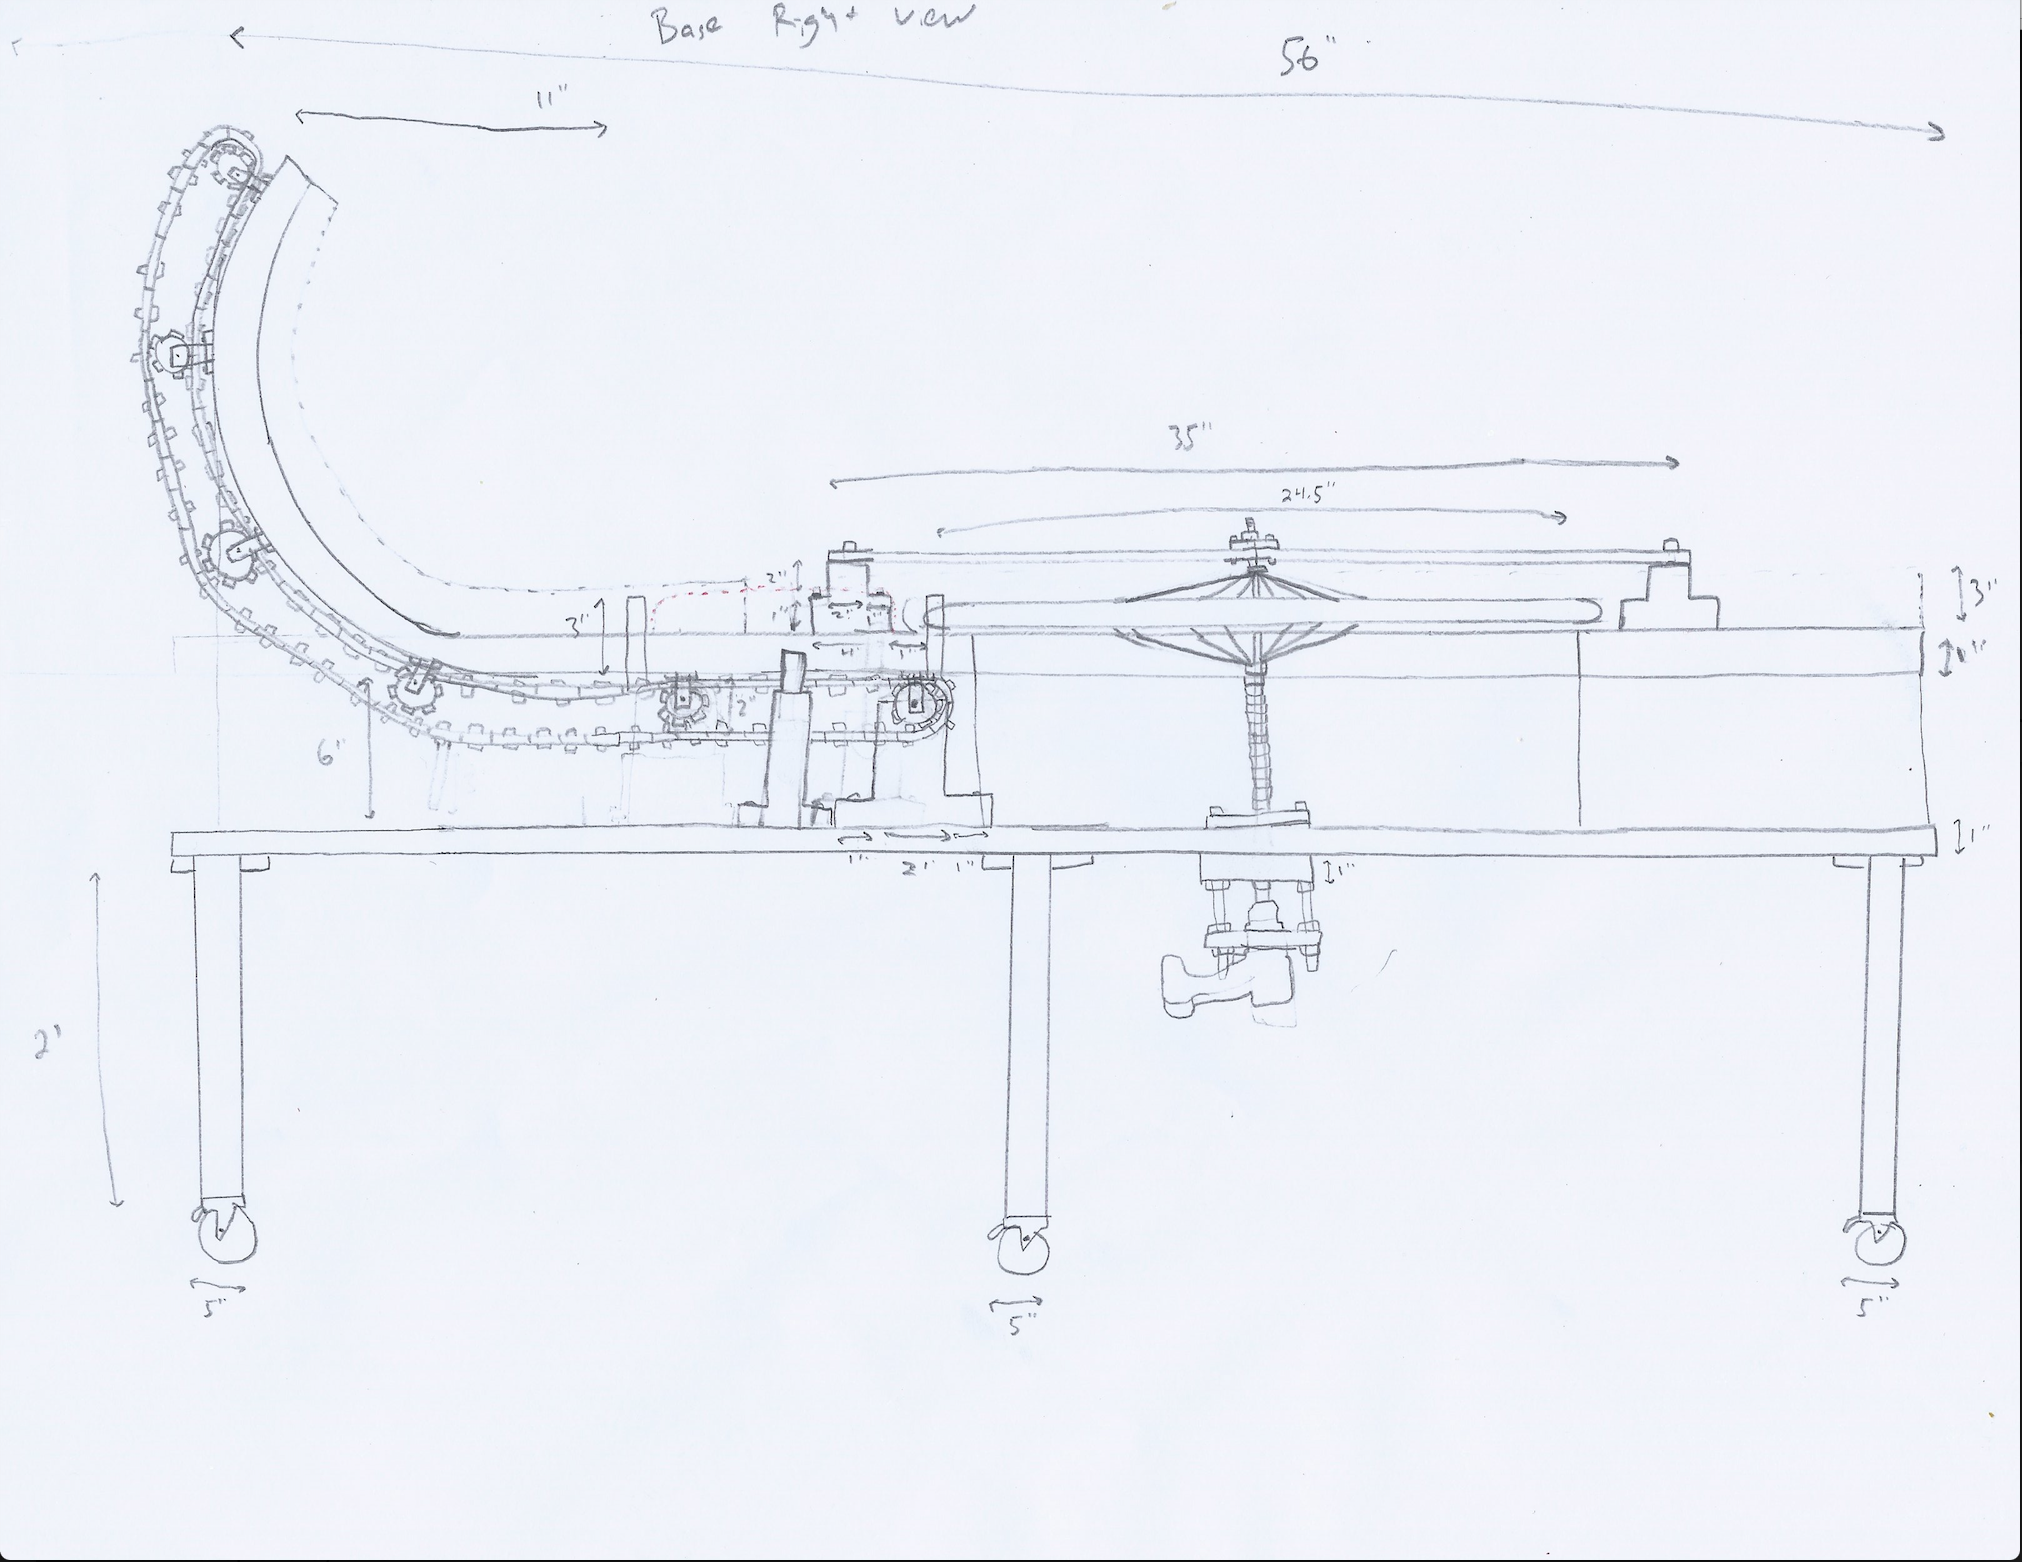 Base Right View
56"
11"
35"
24.5"
2"
3"
3"
1"
2"
4"
1"
2"
6"
1"
1"
2"
1"
1"
2'
5"
5"
5"